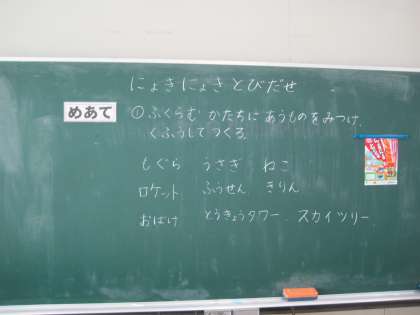 にょきにょきとびだせ
めあて ①ふくらむ かたちに あうものをみつけ、
くふうして つくる。
もぐら うさぎ ねこ
ロケット ふうせん きりん
おばけ とうきょうタワー、スカイツリー